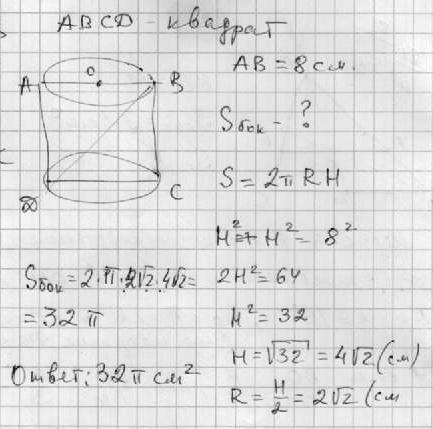 ABCD - квадрат
O
A
B
AB = 8 см.
Sбок - ?
S = 2πRH
D
C
H² + H² = 8²
2H² = 64
H² = 32
H = √32 = 4√2 (см)
R = H/2 = 2√2 (см
Sбок = 2·π·2√2·4√2 =
= 32π
Ответ: 32π см²